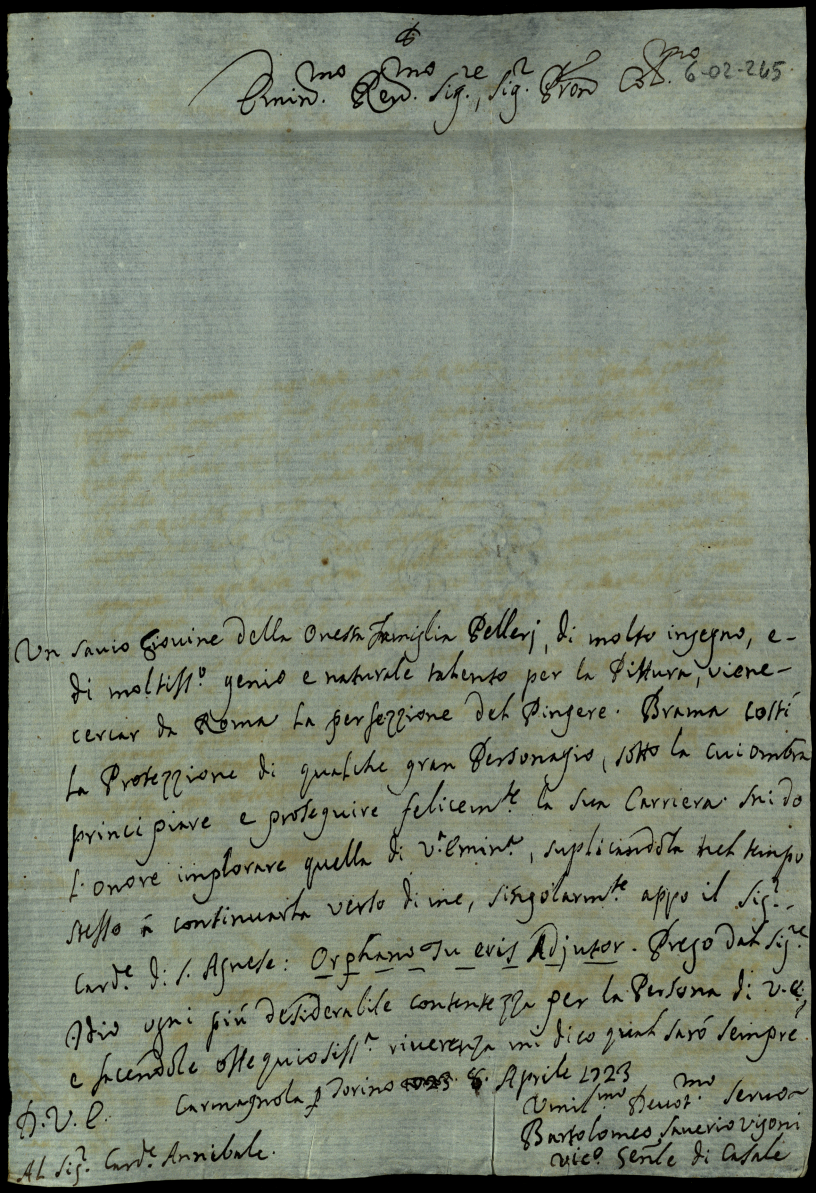 Emin.mo Rev.mo Sig.re, Sig.r Pron Col.mo 6-02-245.
Un savio Giovine della Onesta famiglia Pellerj, di molto ingegno, e-
di moltiss.o genio e naturale talento per la Pittura, viene-
cercar da Roma la perfezzione del Pingere. Brama costí
la Protezzione di qualche gran Personagio, sotto la cui ombra
principiare e proseguire felicem.te la sua Carriera.
l'onore implorare quella di V.a Emin.a, suplicandola nel tempo
stesso á continuarla verso di me, singolarm.te appo il Sig.r
Card.e di S. Agnese: Orphano Tu eris Adjutor. Prego dal Sig.re
Idio ogni piú desiderabile contentezza per la Persona di V.E.,
e facendole ossequiosiss.a riverenza mi dico qual saró sempre
Carmagnola p Torino 8. Aprile 1723
D.V.E.
Umil.mo Devot.mo Servo
Bartolomeo Saverio Vigoni
Vic.o Gen.le di Casale
Al Sig.r Card.e Annibale.